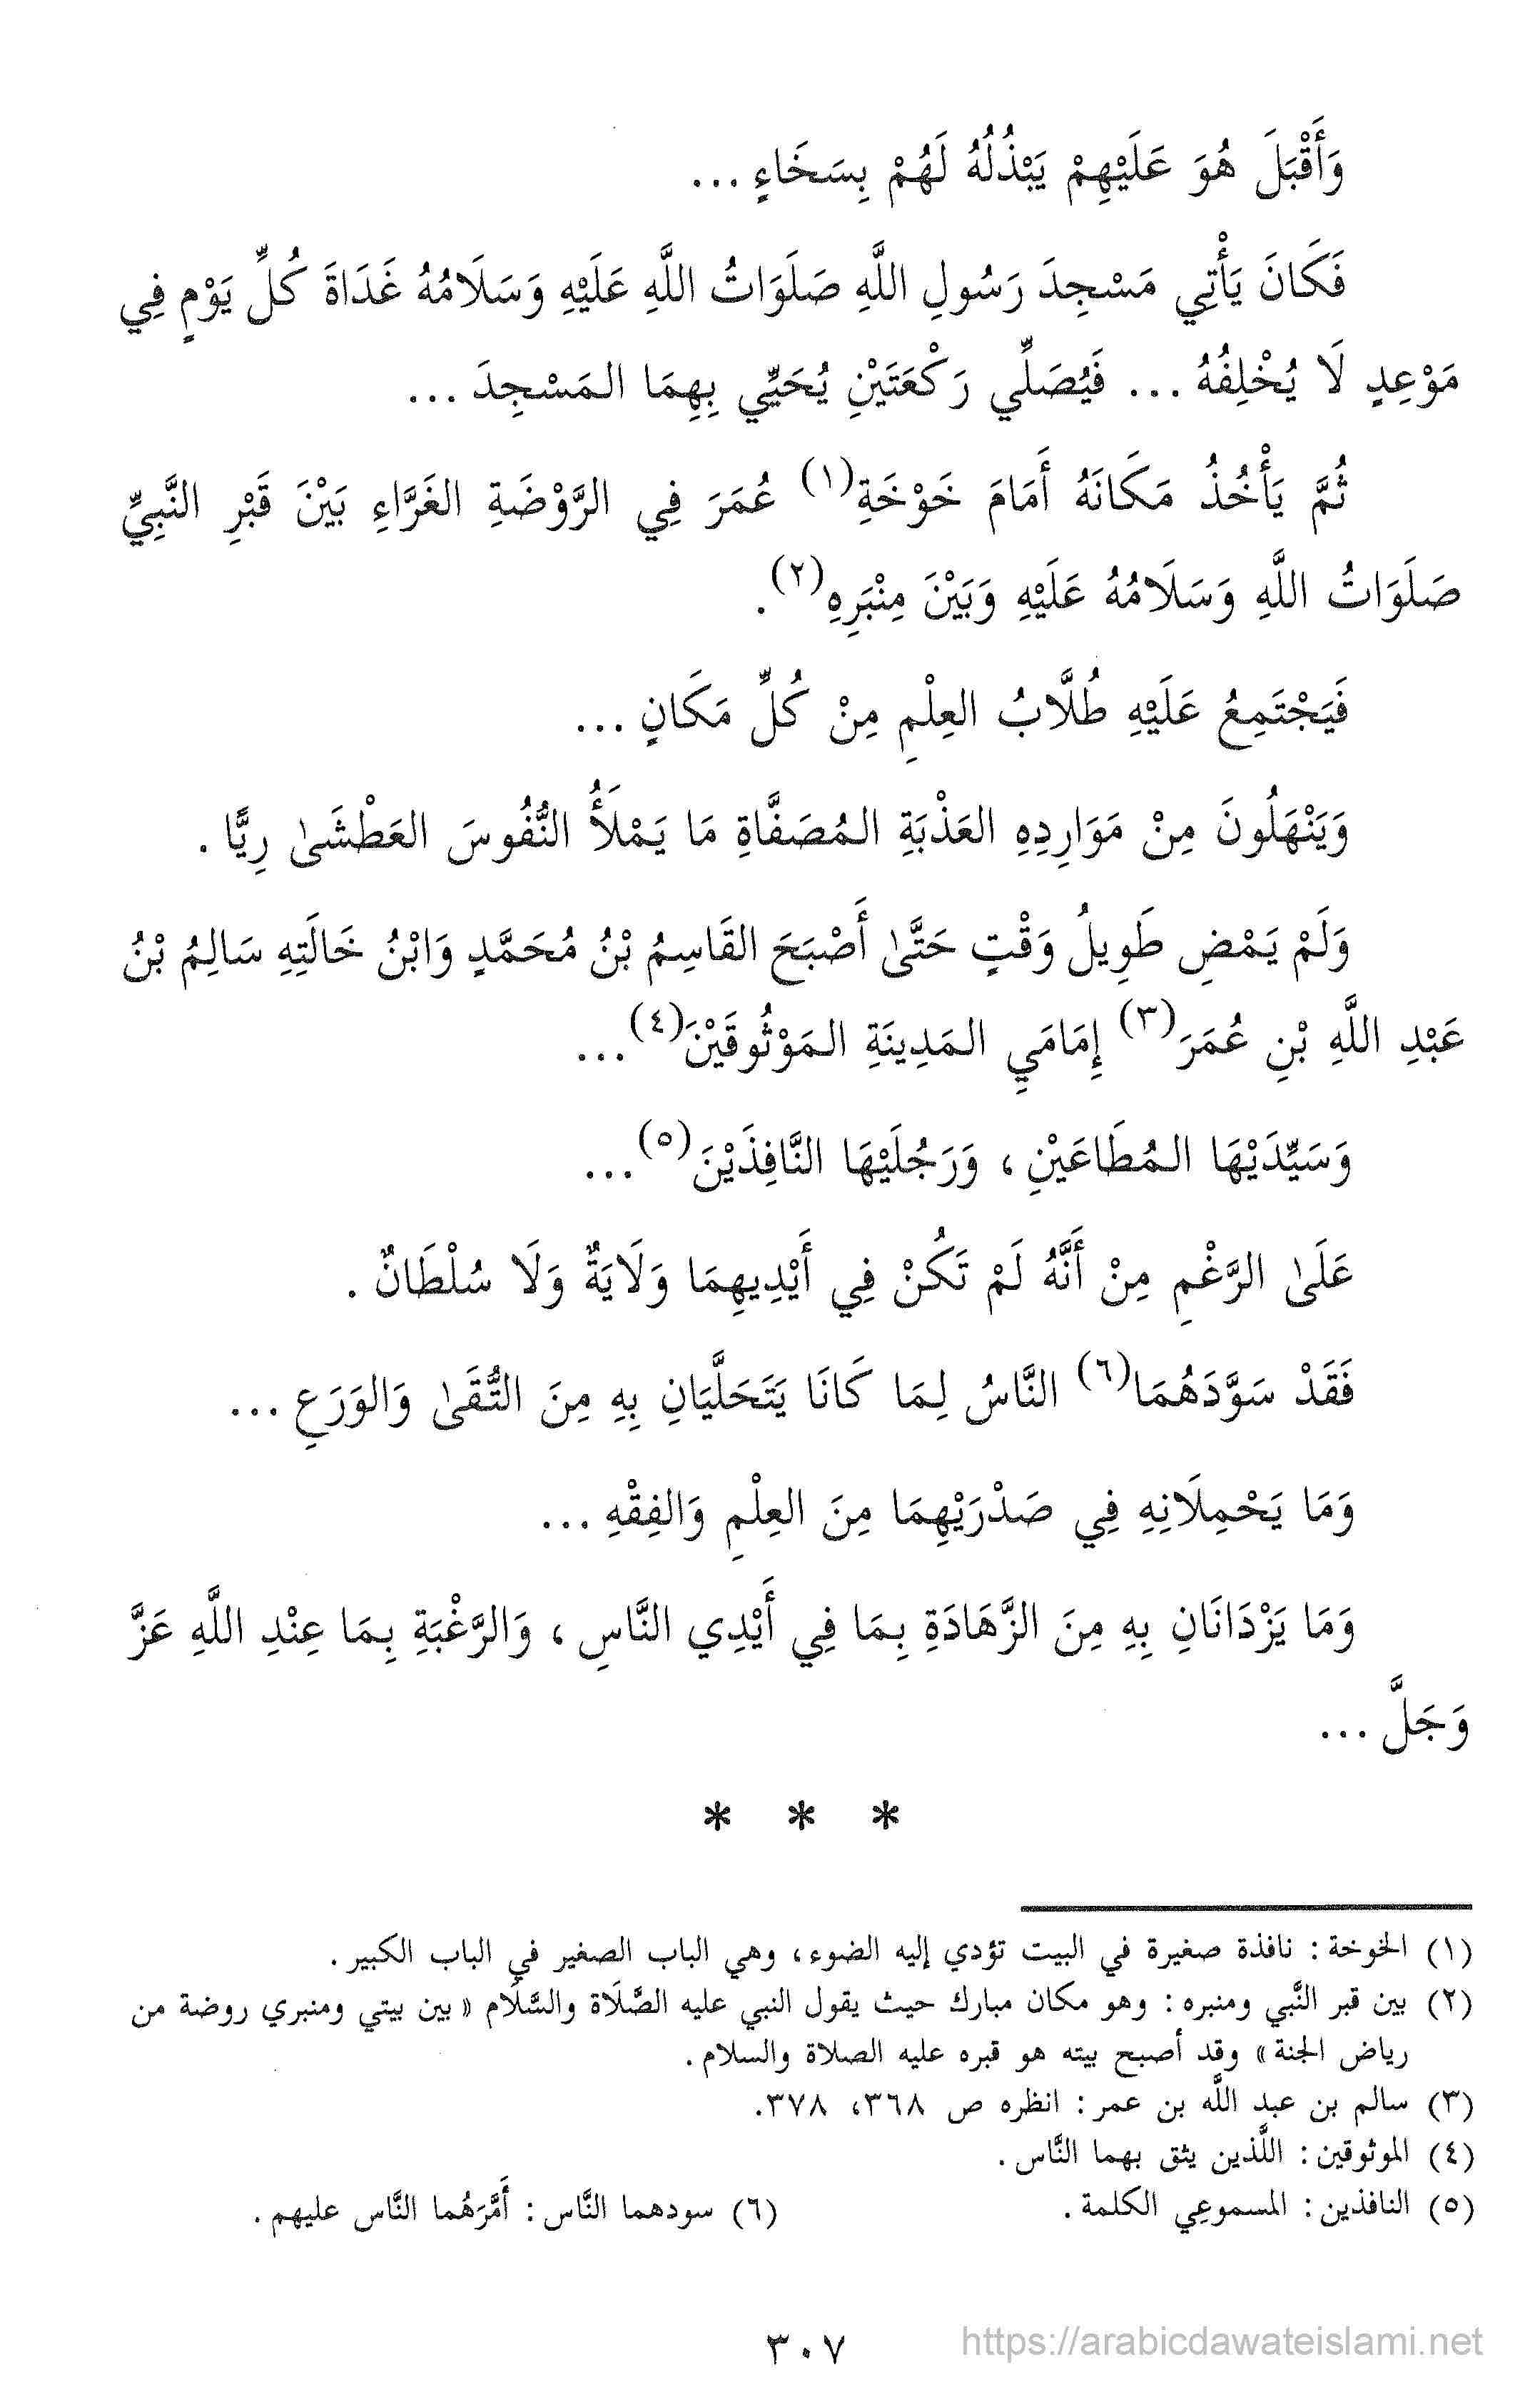 وَأَقْبَلَ هُوَ عَلَيْهِمْ يَبْذُلُهُ لَهُمْ بِسَخَاءٍ ...
فَكَانَ يَأْتِي مَسْجِدَ رَسُولِ اللَّهِ صَلَوَاتُ اللَّهِ عَلَيْهِ وَسَلَامُهُ غَدَاةَ كُلِّ يَوْمٍ فِي
مَوْعِدٍ لَا يُخْلِفُهُ ... فَيُصَلِّي رَكْعَتَيْنِ يُحَيِّي بِهِمَا المَسْجِدَ ...
ثُمَّ يَأْخُذُ مَكَانَهُ أَمَامَ خَوْخَةِ(١) عُمَرَ فِي الرَّوْضَةِ الغَرَّاءِ بَيْنَ قَبْرِ النَّبِيِّ
صَلَوَاتُ اللَّهِ وَسَلَامُهُ عَلَيْهِ وَبَيْنَ مِنْبَرِهِ(٢).
فَيَجْتَمِعُ عَلَيْهِ طُلَّابُ العِلْمِ مِنْ كُلِّ مَكَانٍ ...
وَيَنْهَلُونَ مِنْ مَوَارِدِهِ العَذْبَةِ المُصَفَّاةِ مَا يَمْلَأُ النُّفُوسَ العَطْشَىٰ رِيًّا .
وَلَمْ يَمْضِ طَوِيلُ وَقْتٍ حَتَّىٰ أَصْبَحَ القَاسِمُ بْنُ مُحَمَّدٍ وَابْنُ خَالَتِهِ سَالِمُ بْنُ
عَبْدِ اللَّهِ بْنِ عُمَرَ(٣) إِمَامَيِ المَدِينَةِ المَوْثُوقَيْنَ(٤)...
وَسَيِّدَيْهَا المُطَاعَيْنِ ، وَرَجُلَيْهَا النَّافِذَيْنَ(٥)...
عَلَىٰ الرَّغْمِ مِنْ أَنَّهُ لَمْ تَكُنْ فِي أَيْدِيهِمَا وَلَايَةٌ وَلَا سُلْطَانٌ .
فَقَدْ سَوَّدَهُمَا(٦) النَّاسُ لِمَا كَانَا يَتَحَلَّيَانِ بِهِ مِنَ التُّقَىٰ وَالوَرَعِ ...
وَمَا يَحْمِلَانِهِ فِي صَدْرَيْهِمَا مِنَ العِلْمِ وَالفِقْهِ ...
وَمَا يَزْدَانَانِ بِهِ مِنَ الزَّهَادَةِ بِمَا فِي أَيْدِي النَّاسِ ، وَالرَّغْبَةِ بِمَا عِنْدِ اللَّهِ عَزَّ
وَجَلَّ ...
* * *
(١) الخوخة : نافذة صغيرة في البيت تؤدي إليه الضوء، وهي الباب الصغير في الباب الكبير .
(٢) بين قبر النَّبي ومنبره : وهو مكان مبارك حيث يقول النبي عليه الصَّلَاة والسَّلَام « بين بيتي ومنبري روضة من
رياض الجنة » وقد أصبح بيته هو قبره عليه الصلاة والسلام .
(٣) سالم بن عبد اللَّه بن عمر : انظره ص ٣٦٨، ٣٧٨.
(٤) الموثوقين : اللَّذين يثق بهما النَّاس .
(٥) النافذين : المسموعِي الكلمة .
(٦) سودهما النَّاس : أَمَّرَهُما النَّاس عليهم .
٣٠٧
https://arabicdawateislami.net